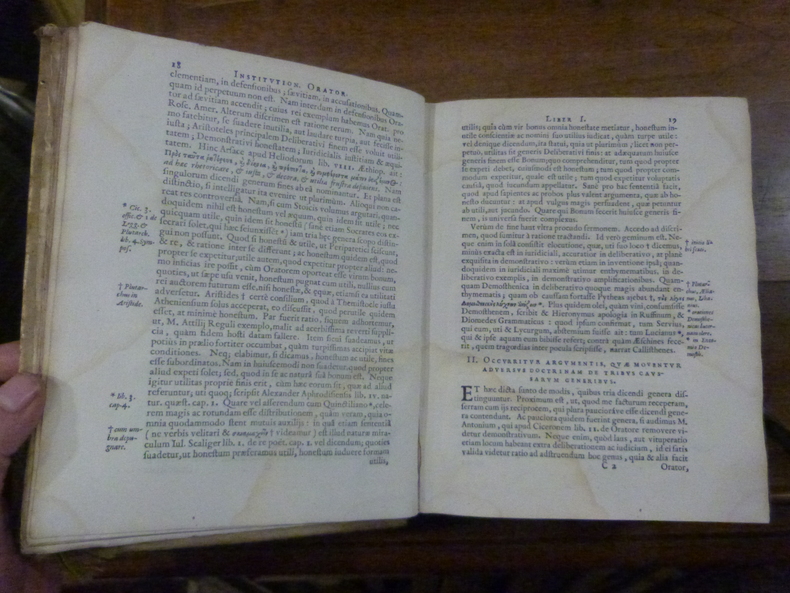 18
INSTITVTION. ORATOR.
clementiam, in defensionibus; sævitiam, in accusationibus. Quam-
quam id perpetuum non est. Nam interdum in defensionibus Ora-
tor ad sævitiam accendit; cuius rei exemplum habemus Orat. pro
Rosc. Amer. Alterum discrimen est ratione rerum. Nam quia ne-
mo fatebitur, se suadere inutilia, aut laudare turpia, aut
iusta; Aristoteles principalem Deliberativi finem esse voluit utili-
tatem; Demonstrativi honestatem; Iuridicialis iustitiam & æqui-
tatem. Hinc Arsace apud Heliodorum lib. VIII. Æthiop. ait:
singulorum dicendi generum fines ab eâ nominantur. Et plana est
distinctio, si intelligatur ita evenire ut plurimùm. Alioqui non ca-
reat res controversiâ. Nam, si cum Stoicis volumus argutari, quan-
doquidem nihil est honestum vel æquum, quin idem sit utile; nec
quicquam utile, quin idem sit honestū; sanè etiam Socrates ex-
secrari solet, qui hæc seiunxisset*: iam tria hæc genera scopo distin-
gui non possunt. Quod si honestū & utile, ut Peripatetici sciscunt,
& re, & ratione inter se differunt; ac honestum quidem est, quod
propter se expetitur; utile autem, quod expetitur propter aliud: ne-
mo inficias ire possit, cùm Oratorem oporteat esse virum bonum,
quoties, ut sæpe usu venit, honestum pugnat cum utili, nullius eum
rei auctorem futurum esse, nisi honestæ, & æquæ, etiamsi ea utilitati
adversetur. Aristides † certè consilium, quod à Themistocle iussu
Atheniensium solus acceperat, eo dissuasit, quod perutile quidem
esset, at minimè honestum. Par fuerit ratio, siquis adhortetur,
ut, M. Attilij Reguli exemplo, malit ad acerbissima reverti suppli-
cia, quàm fidem hosti datam fallere. Item si quis suadeamus, ut
potiùs in prælio fortiter occumbat, quàm turpissimas accipiat vitæ
conditiones. Neq; elabimur, si dicamus, honestum ac utile, fines
esse subordinatos. Nam in huiusmodi non suadetur quid, propter
aliud expeti soles, sed, quod in se ac naturâ suâ bonum est. Neque
igitur utilitas propriè finis erit, cùm hæc eorum sit, quæ ad aliud
referuntur, uti quoq; scripsit Alexander Aphrodisiensis lib. IV. na-
tur. quæst. cap. XI. Quare vel asserendum cum Quinctiliano*, cele-
rem magis ac rotundam esse distributionem, quàm veram, quia o-
mnia quodammodo stent mutuis auxilijs: in quâ etiam sententiâ
(ne verbis velitari & σκιαμαχεῖν † videamur) est illud naturæ mira-
culum Iul. Scaliger lib. I. de re poët. cap. I. vel dicendum; quoties
suadetur, ut honestam præferamus utili, honestum induere formam
utilis,
* Cic. 3.
offic. & 1. de
LL. 33. &
Plutarch.
lib. 4. sym-
pos.
† Plutar-
chus in
Aristide.
* lib. 3.
cap. 4.
† cum um-
bra depu-
gnare.
LIBER I.
19
utilis; quia cùm vir bonus omnia honestate metiatur, honestum in-
neste conscientiæ ac nomini suo utilius iudicat, quàm turpe utile:
vel denique dicendum, ita statui, quia ut plurimùm, licet non per-
petuò, utilitas sit generis Deliberativi finis: at adæquatum huiusce
generis finem esse Bonum; quo comprehenditur, tum quod propter
se expeti debet, cuiusmodi est honestum; tum quod propter commo-
dum expetitur, quale est utile; tum quod expetitur voluptatis
causâ, quod iucundum appellatur. Sanè pro hac sententiâ facit,
quod apud sapientes ac probos plus valent argumenta, quæ ab ho-
nesto ducuntur: at apud vulgus magis persuadent, quæ petuntur
ab utili, aut jucundo. Quare qui Bonum fecerit huiusce generis fi-
nem, is universa fuerit complexus.
Verùm de fine haut vltra procedo sermonem. Accedo ad discri-
men, quod sumitur à ratione tractandi. Id verò geminum est. Ne-
que enim in solâ consistit elocutione, quæ, uti suo loco † dicemus,
minùs exacta est in iuridiciali, accuratior in deliberativo; at planè
exquisita in demonstrativo: verùm etiam in inventione ipsâ; quan-
doquidem in iuridiciali maximè utimur enthymematibus, in de-
liberativo exemplis, in demonstrativo amplificationibus. Quam-
quam Demosthenica in deliberativo quoque magis abundant en-
thymematis; quam ob caussam fortasse Pytheas ajebat †,
Plus quidem olei, quàm vini, consumsisse
Demosthenem, scribit & Hieronymus apologiâ in Ruffinum, &
Diomedes Grammaticus: quod ipsum confirmat, tum Servius,
qui eum, uti & Lycurgum, abstemium fuisse ait: tum Lucianus*,
qui & ipse aquam eum bibisse refert; contrà quàm Æschines fece-
rit, quem tragœdias inter pocula scripsisse, narrat Callisthenes.
II. OCCVRRITVR ARGVMENTIS, QVÆ MOVENTVR
ADVERSVS DOCTRINAM DE TRIBVS CAVS-
SARVM GENERIBVS.
ET hæc dicta sunto de modis, quibus tria dicendi genera dis-
tinguuntur. Proximum est, ut, quod me facturum receperam,
serram cum ijs reciprocem, qui plura paucioráve esse dicendi gene-
ra contendunt. Ac pauciora quidem fuerint genera, si audimus M.
Antonium, qui apud Ciceronem lib. II. de Oratore removere vi-
detur demonstrativum. Neque enim, quòd laus, aut vituperatio
etiam locum habeant extra deliberationem ac iudicium, id ei satis
valida videtur ratio ad adstruendum hoc genus, quia & alia facit
C 2
Orator,